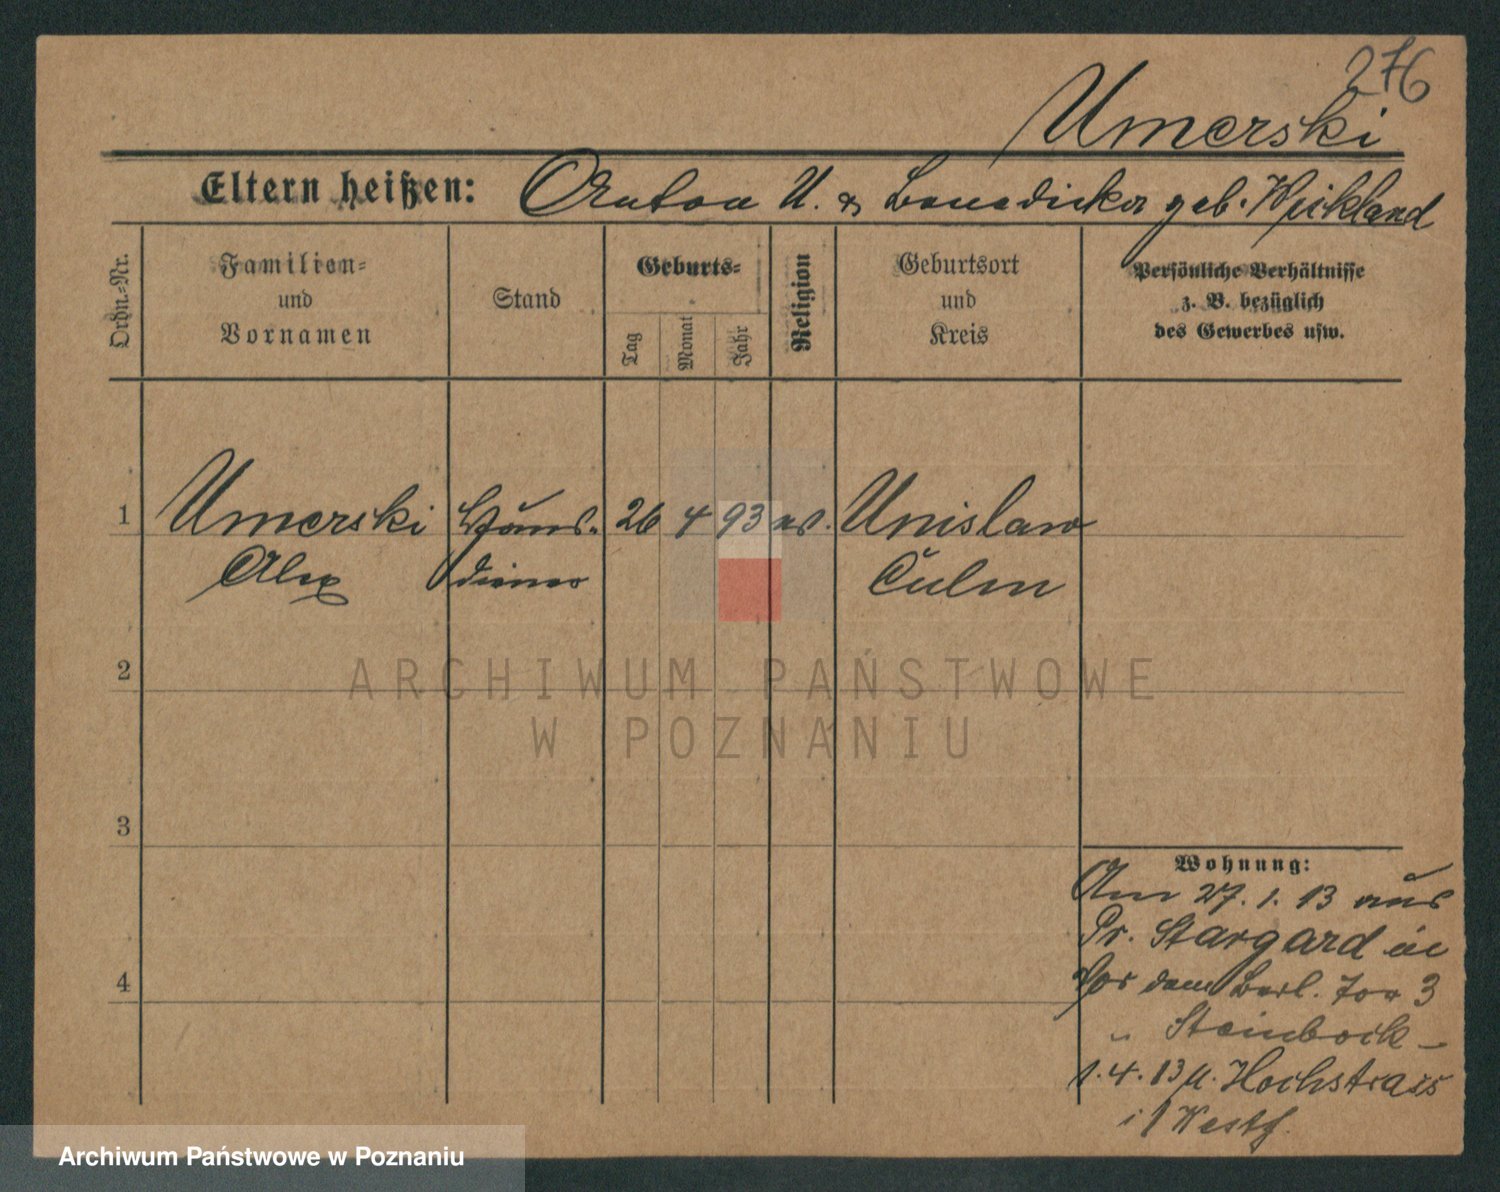 276
Umerski
Eltern heißen: Anton U. & Benedickta geb. Weikland
Ordn.=Nr.
Familien=
und
Vornamen
Stand
Geburts=
Tag
Monat
Jahr
Religion
Geburtsort
und
Kreis
Persönliche Verhältnisse
z. B. bezüglich
des Gewerbes usw.
1 Umerski Haus- 26 4 93 Unislaw
Alex diener Culm
2
ARCHIWUM PAŃSTWOWE
W POZNANIU
3
4
Wohnung:
Am 27. 1. 13 aus
Pr. Stargard in
Vor dem Berl. Tor 3
" Steinbock -
1. 4. 13 n. Hochstrass
i/Westf.
Archiwum Państwowe w Poznaniu